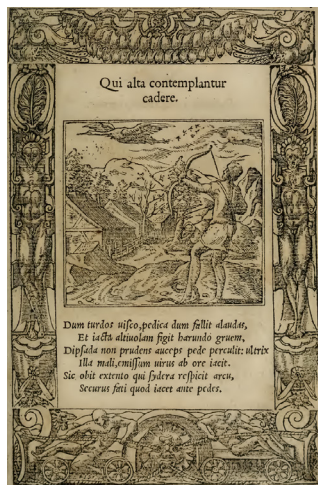 Qui alta contemplantur
cadere.
Dum turdos uisco, pedica dum fallit alaudas,
Et iacta altiuolam figit harundo gruem,
Dipsada non prudens auceps pede perculit: ultrix
Illa mali, emissum uirus ab ore iacit.
Sic obit extento qui sydera respicit arcu,
Securus fati quod iacet ante pedes.